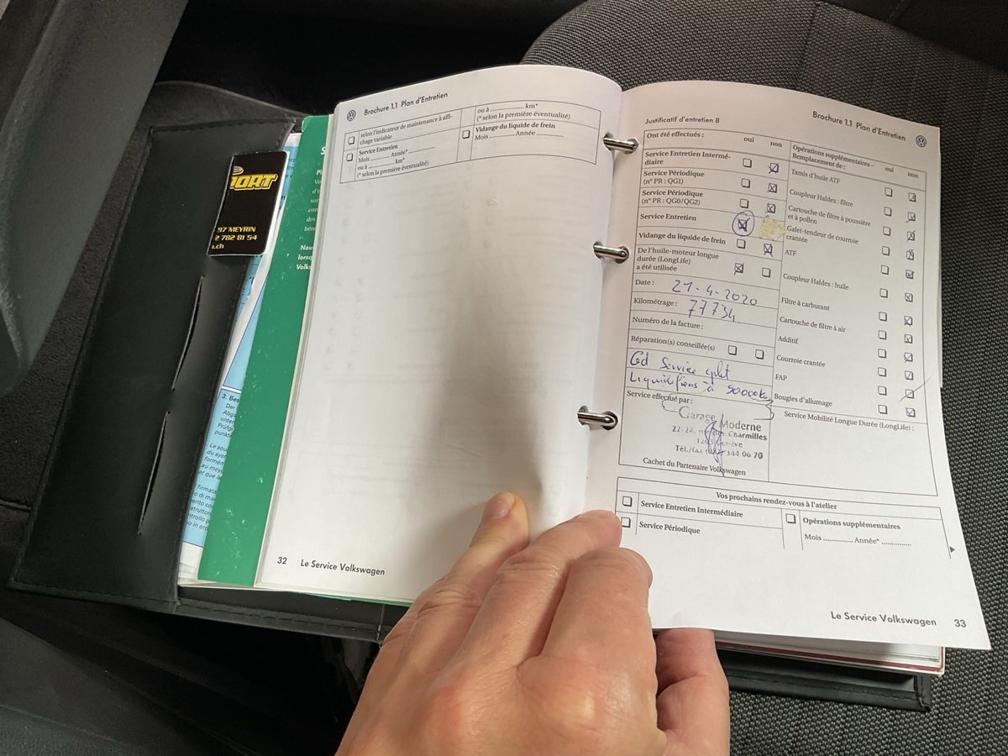 PORT
1217 MEYRIN
2 782 81 54
.ch
3. Bes
Brochure 1.1 Plan d'Entretien
selon l'indicateur de maintenance à affi-
chage variable
Service Entretien
Mois ........ Année* ........
ou à ........ km*
(* selon la première éventualité)
ou à ........ km*
(* selon la première éventualité)
Vidange du liquide de frein
Mois ........ Année ........
32 Le Service Volkswagen
Brochure 1.1 Plan d'Entretien
Justificatif d'entretien 8
Ont été effectués : oui non
Service Entretien Intermé-
diaire
Service Périodique
(n° PR : QG1)
Service Périodique
(n° PR : QG0/QG2)
Service Entretien
Vidange du liquide de frein
De l'huile-moteur longue
durée (LongLife)
a été utilisée
Date : 21-4-2020
Kilométrage : 77734
Numéro de la facture :
Réparation(s) conseillée(s)
Gd Service cplt
Liquide freins à 90000k
Service effectué par :
Garage Moderne
Charmilles
344 06 70
Cachet du Partenaire Volkswagen
Opérations supplémentaires –
Remplacement de : oui non
Tamis d'huile ATF
Coupleur Haldex : filtre
Cartouche de filtre à poussière
et à pollen
Galet-tendeur de courroie
crantée
ATF
Coupleur Haldex : huile
Filtre à carburant
Cartouche de filtre à air
Additif
Courroie crantée
FAP
Bougies d'allumage
Service Mobilité Longue Durée (LongLife) :
Vos prochains rendez-vous à l'atelier
Service Entretien Intermédiaire
Service Périodique
Opérations supplémentaires
Mois ........ Année* ........
Le Service Volkswagen 33